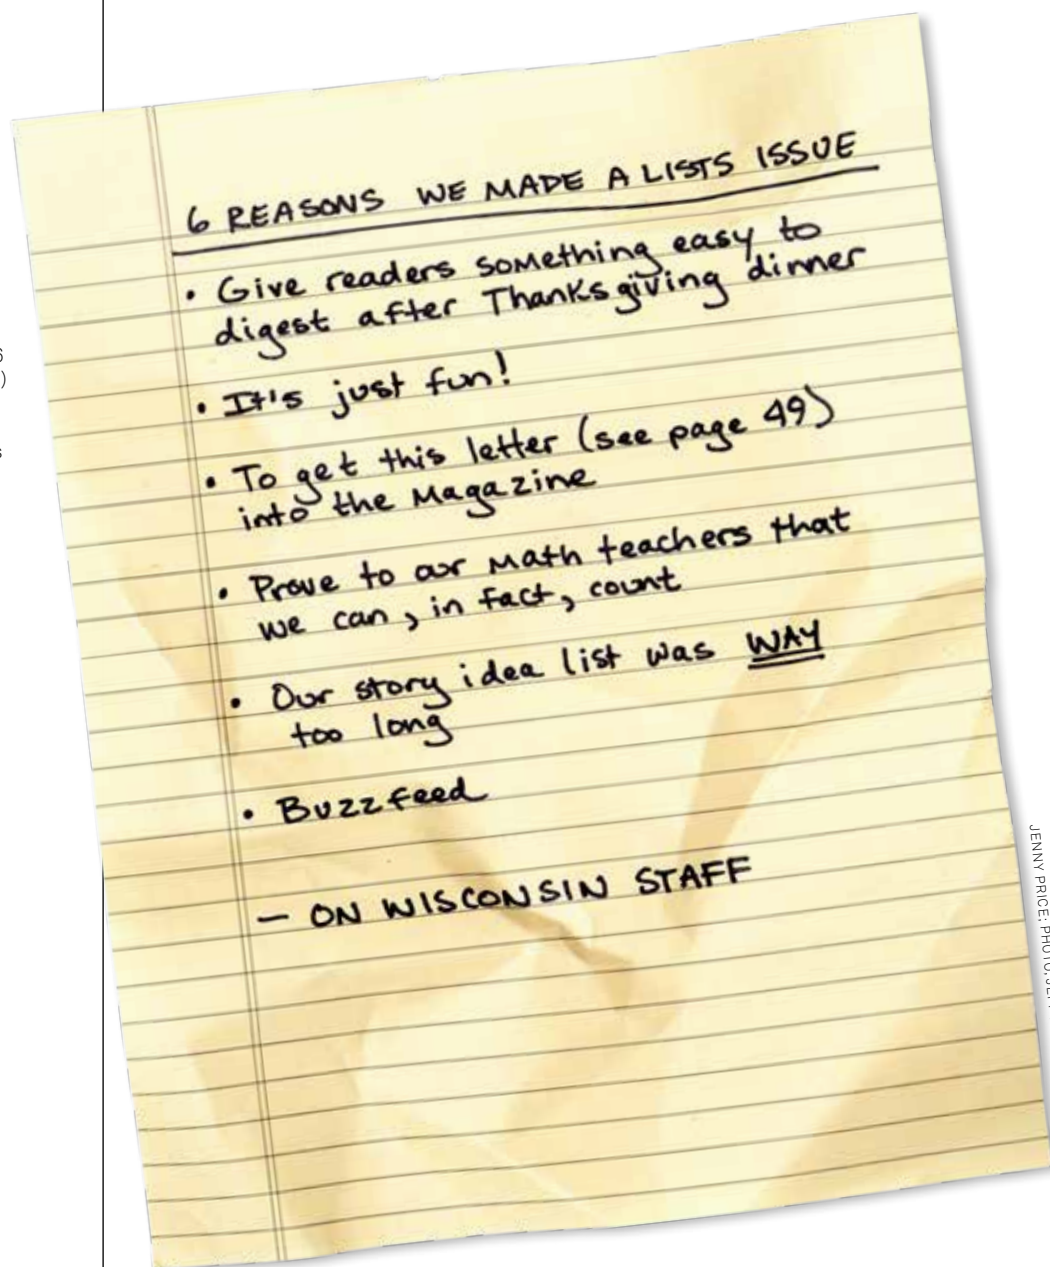 6 REASONS WE MADE A LISTS ISSUE
• Give readers something easy to
digest after Thanksgiving dinner
• It's just fun!
• To get this letter (see page 49)
into the Magazine
• Prove to our Math teachers that
we can, in fact, count
• Our story idea list was WAY
too long
• Buzzfeed
— ON WISCONSIN STAFF
JENNY PRICE; PHOTO:
6
)
s